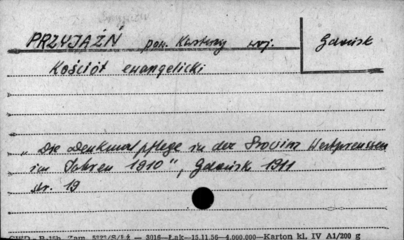 PRZYJAŹŃ pow. Kartuzy woj. Gdańsk
Kościół ewangelicki
„Die Denkmalpflege in der Provinz Westpreussen
im Jahren 1910", Gdańsk 1911
str. 19
3016—Łąk—15.11.56—4.000.000—Karton kl. IV A1/200 g